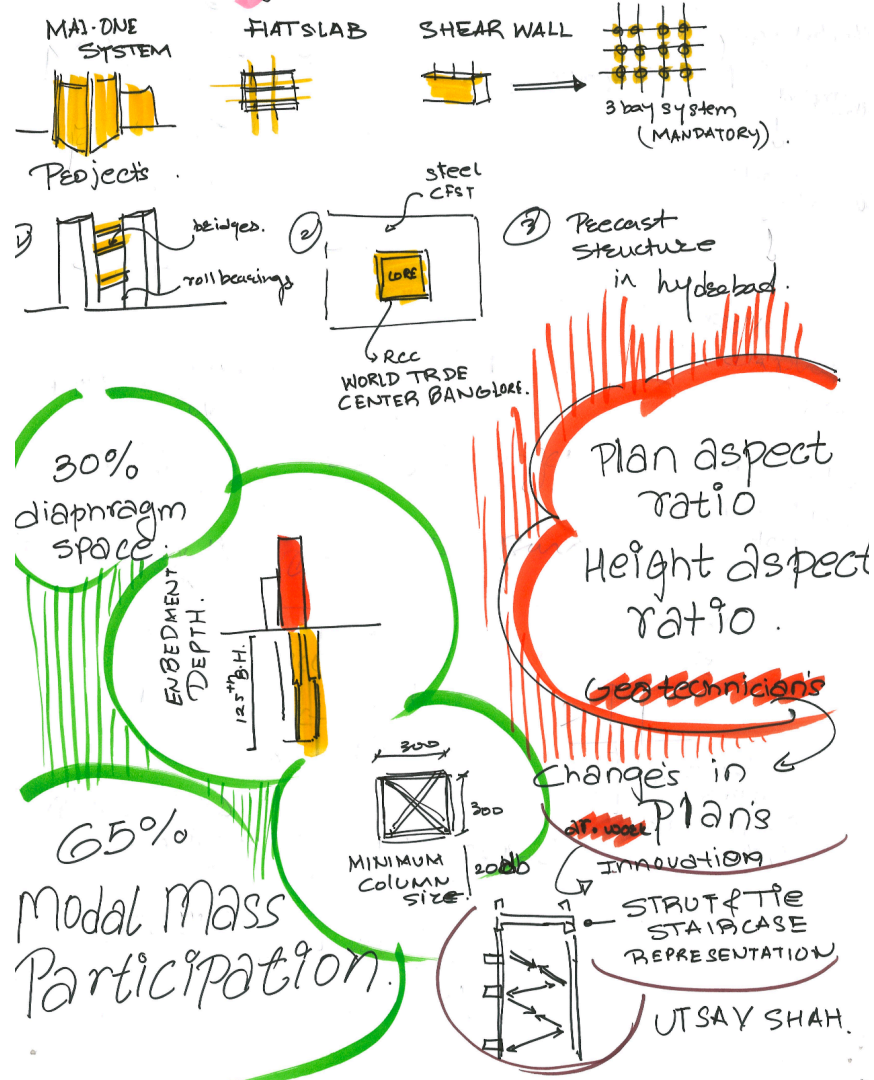 MAI-ONE
SYSTEM
FLATSLAB
SHEAR WALL
3 bay system
(MANDATORY).
Projects.
1)
bridges.
roll bearings
2
steel
CFST
CORE
RCC
WORLD TRDE
CENTER BANGLORE.
3 Precast
structure
in hydrabad.
30%
diaphragm
space.
ENBEDMENT
DEPTH.
125th B.H.
Plan aspect
ratio
Height aspect
ratio.
Geotechnician's
Changes in
Plan's
ar. work
Innovation
300
300
MINIMUM
COLUMN
SIZE.
20db
65%
Modal Mass
Participation.
STRUT & TIE
STAIRCASE
REPRESENTATION
UTSAV SHAH.